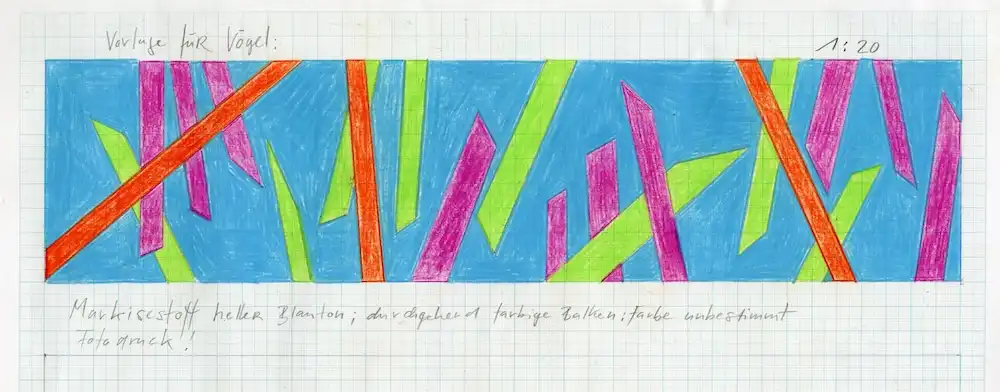 Vorlage für Vögel:
1:20
Markisestoff heller Blauton; durchgehend farbige Balken: farbe unbestimmt
Fotodruck!!